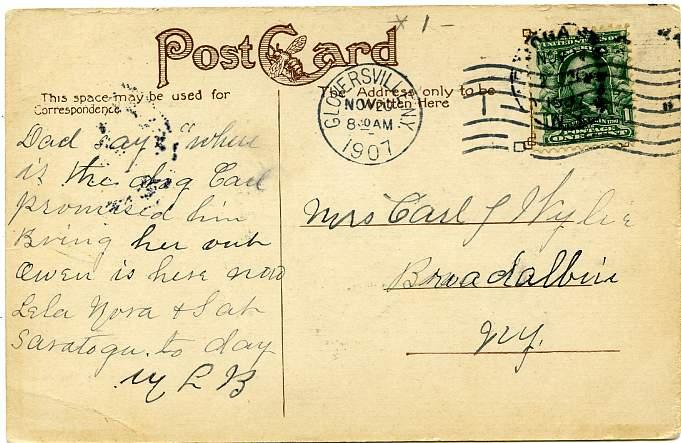 * 1-
Post Card
This space may be used for
Correspondence.
The Address only to be
Written Here
GLOVERSVILLE, N.Y.
NOV 20
8-30AM
1907
UNITED STATES
POSTAGE
ONE CENT
Dad says "where
is the dog Carl
promised him
Bring her out
Owen is here now
Lela Nora & I at
Saratoga to day
M L B
Mrs Carl J Wylie
Broadalbin
N.Y.